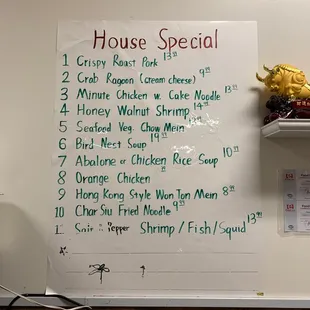 House Special
1 Crispy Roast Pork 13
2 Crab Ragoon (cream cheese) 9.99
3 Minute Chicken w. Cake Noodle 13
4 Honey Walnut Shrimp 14
5 Seafood Veg. Chow Mein
6 Bird Nest Soup 19
7 Abalone or Chicken Rice Soup 10
8 Orange Chicken
9 Hong Kong Style Won Ton Mein 8.99
10 Char Siu Fried Noodle 9
Pepper Shrimp / Fish / Squid 13.99